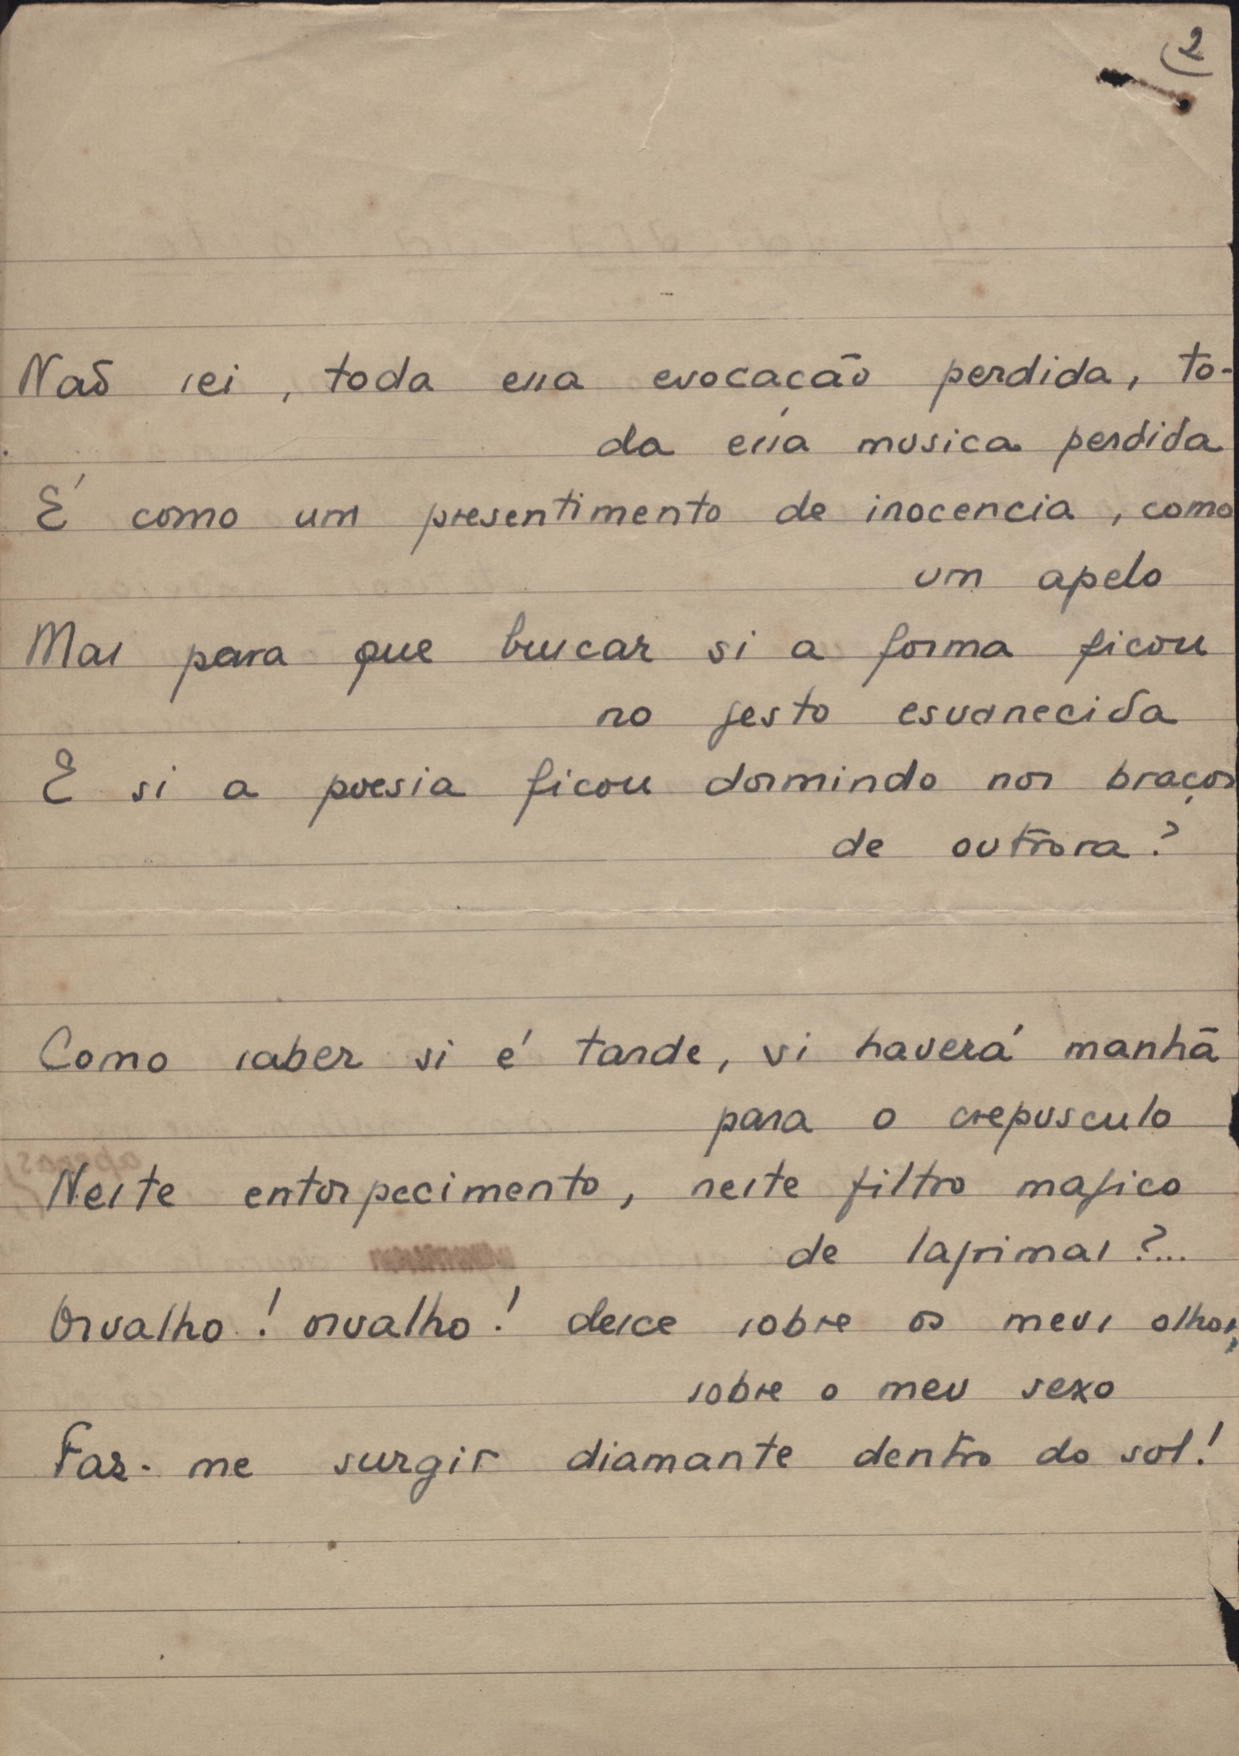 2
Não sei, toda essa evocação perdida, to-
da essa musica perdida
É como um presentimento de inocencia, como
um apelo
Mas para que buscar si a forma ficou
no gesto esvanecida
E si a poesia ficou dormindo nos braços
de outrora?
Como saber si é tarde, si haverá manhã
para o crepusculo
Neste entorpecimento, neste filtro magico
de lagrimas?...
Orvalho! orvalho! desce sobre os meus olhos,
sobre o meu sexo
Faz-me surgir diamante dentro do sol!